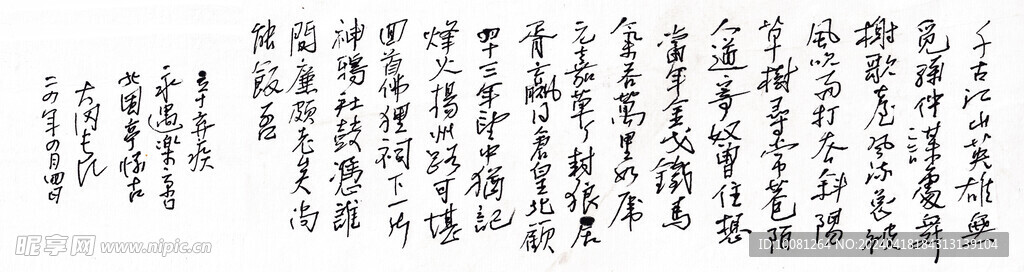 千古江山英雄無
覓孫仲謀處舞
榭歌臺風流總被
風吹雨打去斜陽
草樹尋常巷陌
人道寄奴曾住想
當年金戈鐵馬
氣吞萬里如虎
元嘉草草封狼居
胥贏得倉皇北顧
四十三年望中猶記
烽火揚州路可堪
回首佛狸祠下一片
神鴉社鼓憑誰
問廉頗老矣尚
能飯否
辛弃疾
永遇樂京口
北固亭怀古
昵享网 www.nipic.cn
ID:10081264 NO:20240418184313139104